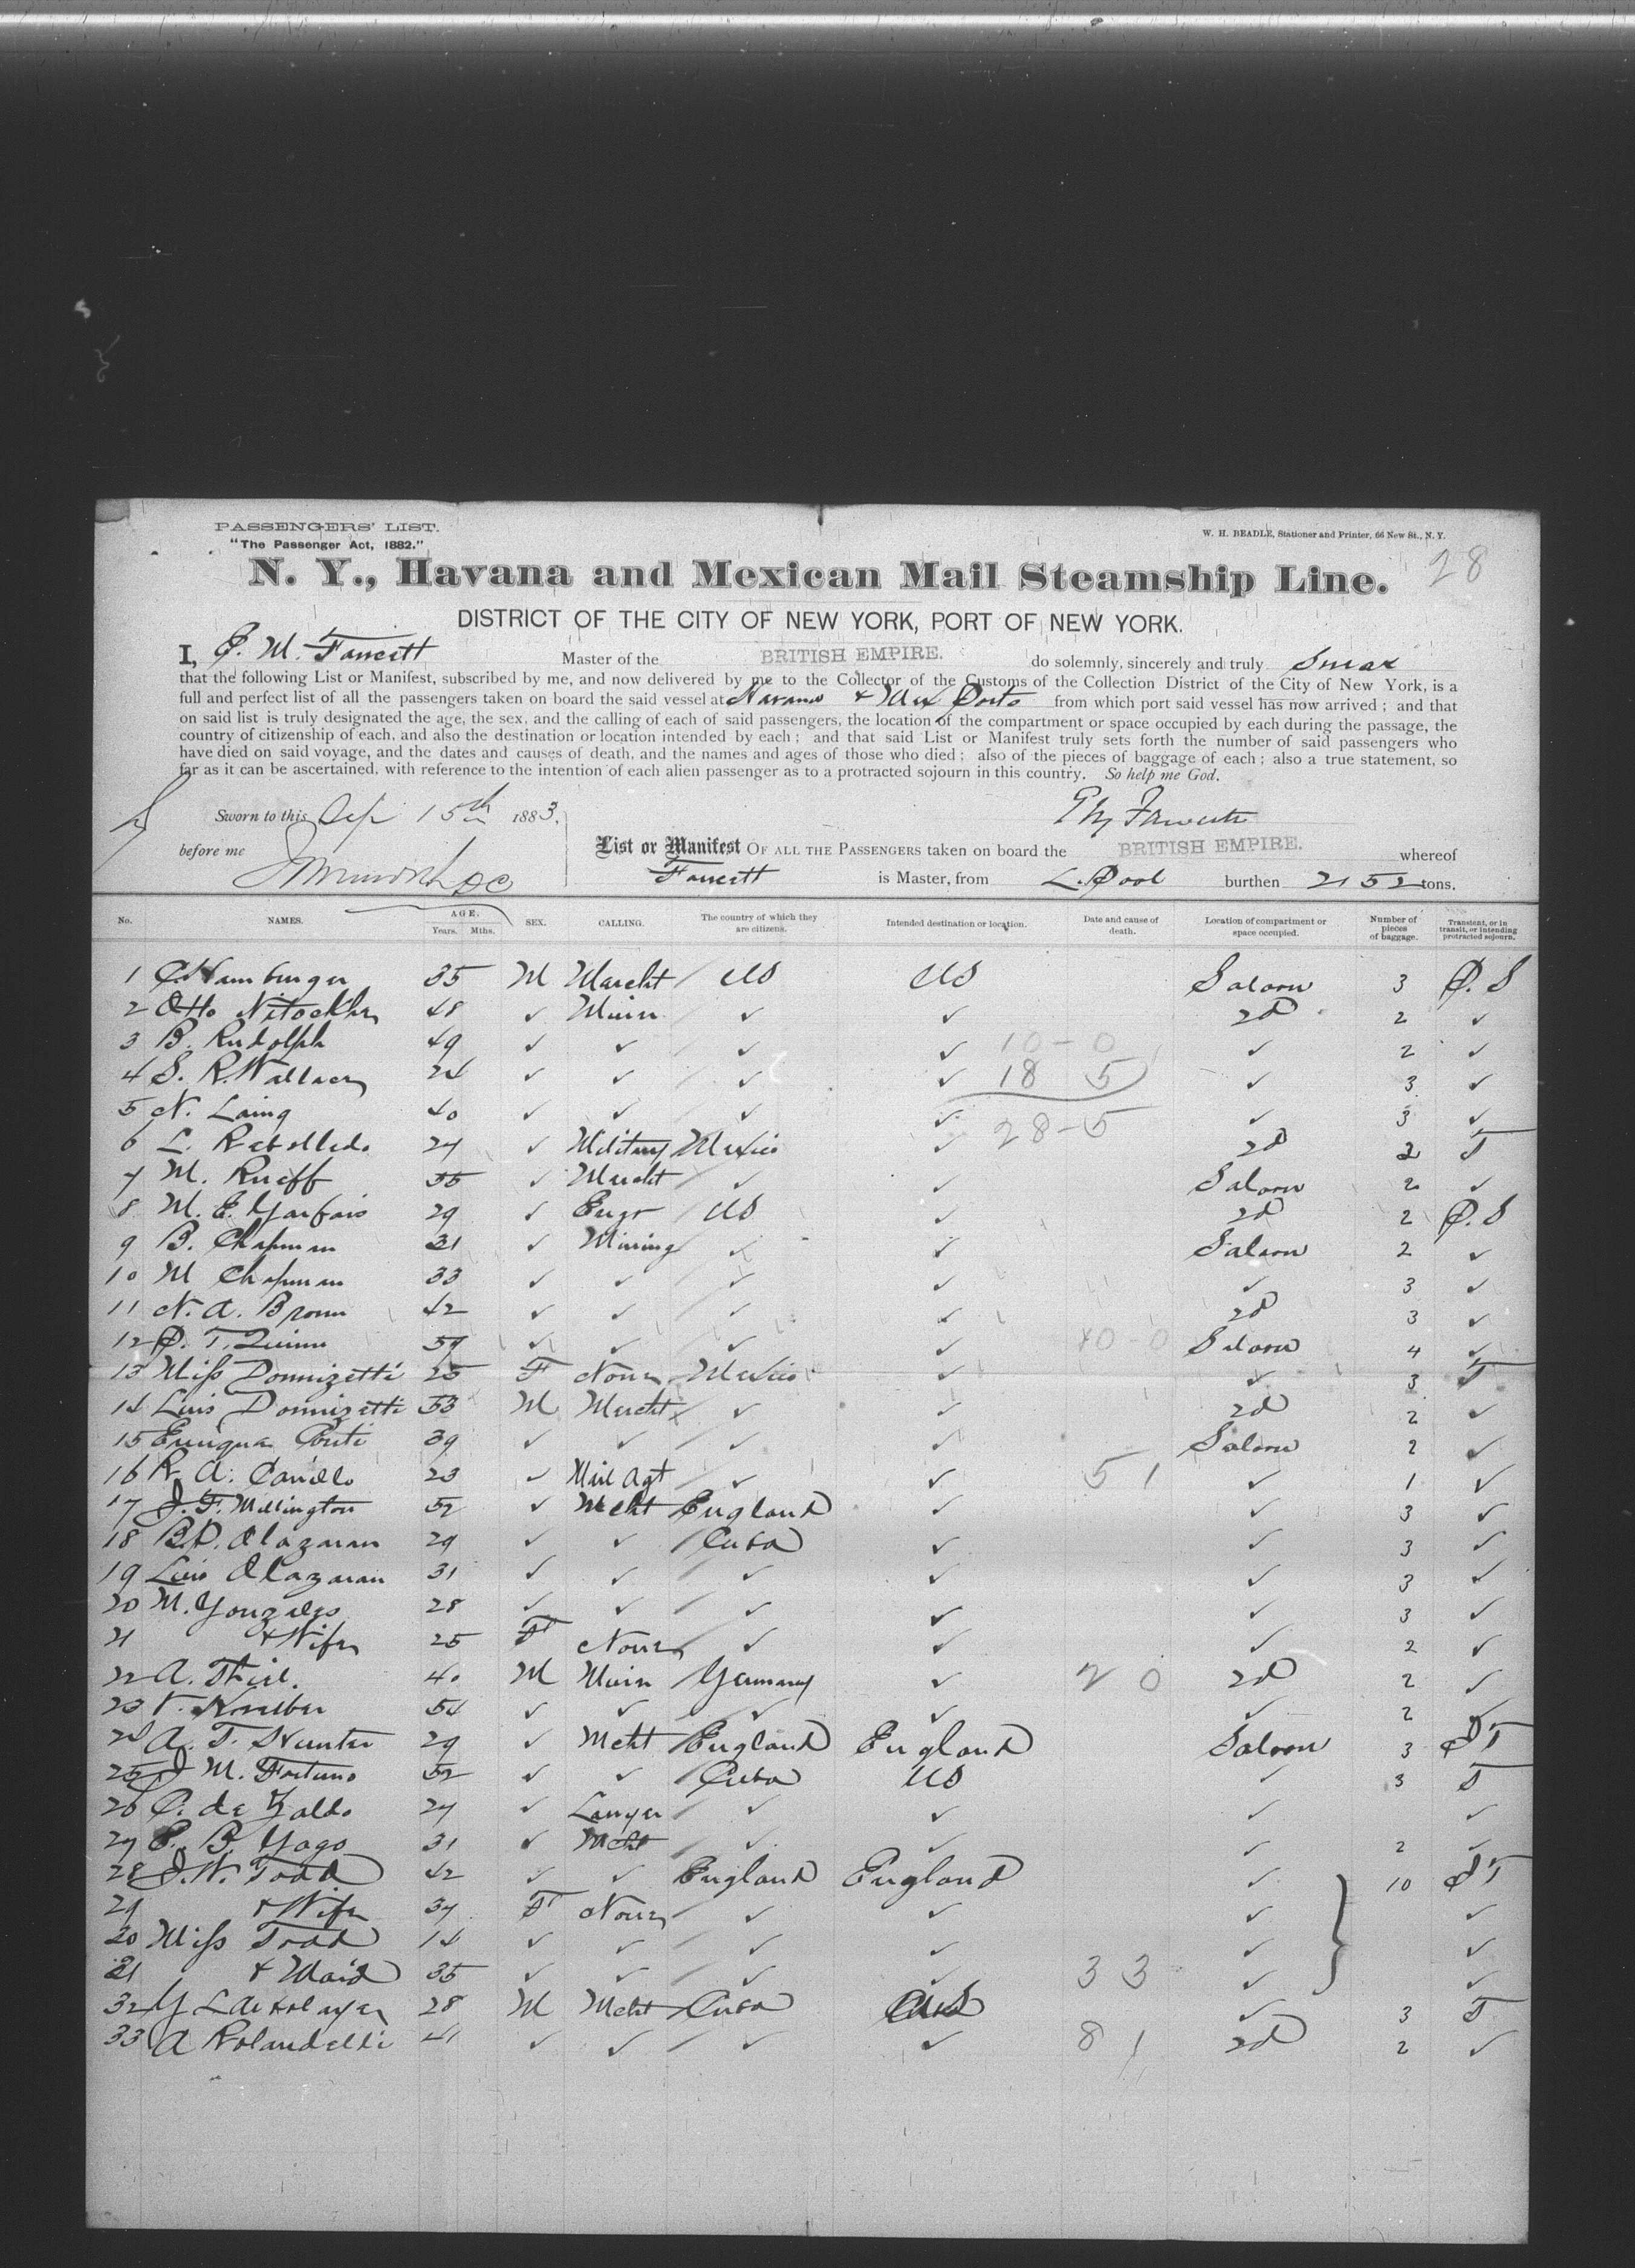 PASSENGERS' LIST.
"The Passenger Act, 1882."
W. H. BEADLE, Stationer and Printer, 66 New St., N. Y.
28
N. Y., Havana and Mexican Mail Steamship Line.
DISTRICT OF THE CITY OF NEW YORK, PORT OF NEW YORK.
I, P. M. Fawcett Master of the BRITISH EMPIRE. do solemnly, sincerely and truly Swear
that the following List or Manifest, subscribed by me, and now delivered by me to the Collector of the Customs of the Collection District of the City of New York, is a
full and perfect list of all the passengers taken on board the said vessel at Havana & Mex Ports from which port said vessel has now arrived; and that
on said list is truly designated the age, the sex, and the calling of each of said passengers, the location of the compartment or space occupied by each during the passage, the
country of citizenship of each, and also the destination or location intended by each; and that said List or Manifest truly sets forth the number of said passengers who
have died on said voyage, and the dates and causes of death, and the names and ages of those who died; also of the pieces of baggage of each; also a true statement, so
far as it can be ascertained, with reference to the intention of each alien passenger as to a protracted sojourn in this country. So help me God.
Sworn to this Sep 15th 1883,
P M Fawcett
before me
List or Manifest OF ALL THE PASSENGERS taken on board the BRITISH EMPIRE. whereof
Fawcett is Master, from L.Pool burthen 2152 tons.
No. NAMES. AGE. Years. Mths. SEX. CALLING. The country of which they are citizens. Intended destination or location. Date and cause of death. Location of compartment or space occupied. Number of pieces of baggage. Transient, or in transit, or intending protracted sojourn.
1 C Hamburger 35 M Marcht / US US Saloon 3 P. S
2 Otto 48 ✓ / ✓ ✓ 2d 2 ✓
3 B. Rudolph 49 ✓ ✓ / ✓ ✓ 10-0 ✓ 2 ✓
4 S. R. Wallace 24 ✓ ✓ / ✓ ✓ 18 5 ✓ 3 ✓
5 N. Laing 40 ✓ ✓ / ✓ ✓ ✓ 3 ✓
28-5
6 L. Rebolledo 27 ✓ Military Mexico ✓ 2d 2 T
7 M. Rueff 35 ✓ Marcht / ✓ ✓ Saloon 2 ✓
8 M. E. 29 ✓ Engr / US ✓ 2d 2 P. S
9 B. Chapman 31 ✓ Mining ✓ ✓ Saloon 2 ✓
10 M Chapman 33 ✓ ✓ / ✓ ✓ ✓ 3 ✓
11 N. A. Brown 42 ✓ ✓ / ✓ ✓ 2d 3 ✓
12 P. T. Quinn 57 ✓ ✓ / ✓ ✓ 40 0 Saloon 4 ✓
13 Miss Donnizetti 25 F None Mexico ✓ ✓ 3 T
14 Luis Donnizetti 53 M Marcht ✓ ✓ 2d 2 ✓
15 39 ✓ ✓ / ✓ ✓ Saloon 2 ✓
16 R. A. Carillo 23 ✓ Mail Agt ✓ ✓ 5 1 ✓ 1 ✓
17 J. F. Millington 52 ✓ Mcht England ✓ ✓ 3 ✓
18 Olazaran 29 ✓ ✓ / Cuba ✓ ✓ 3 ✓
19 Luis Olazaran 31 ✓ ✓ / ✓ ✓ ✓ 3 ✓
20 M. Gonzales 28 ✓ ✓ / ✓ ✓ ✓ 3 ✓
21 & Wife 25 F None ✓ ✓ ✓ 2 ✓
22 A. 40 M / Germany ✓ 2 0 2d 2 ✓
23 54 ✓ ✓ / ✓ ✓ ✓ 2 ✓
24 A. T. Hunter 29 ✓ Mcht England England Saloon 3
25 J M. Fortuno 52 ✓ ✓ / Cuba US ✓ 3 T
26 C. de Zaldo 27 ✓ Lawyer / ✓ ✓ ✓ ✓
27 E. B Yago 31 ✓ Mcht / ✓ ✓ ✓ 2 ✓
28 J. W. Todd 42 ✓ ✓ England England ✓ 10
29 & Wife 37 F None / ✓ ✓ ✓ ✓
30 Miss Todd 14 ✓ ✓ / ✓ ✓ ✓ ✓
31 & Maid 35 ✓ ✓ / ✓ ✓ 3 3 ✓ ✓
32 28 M Mcht Cuba US ✓ 3 T
33 A Rolandelli 41 ✓ ✓ / ✓ ✓ 8 1 2d 2 ✓